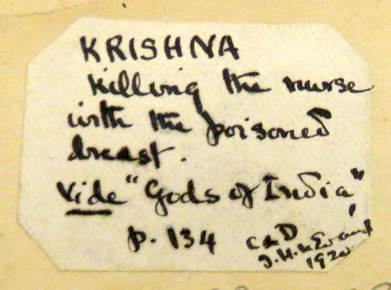 KRISHNA
killing the nurse
with the poisoned
breast.
Vide "Gods of India"
p. 134
1920